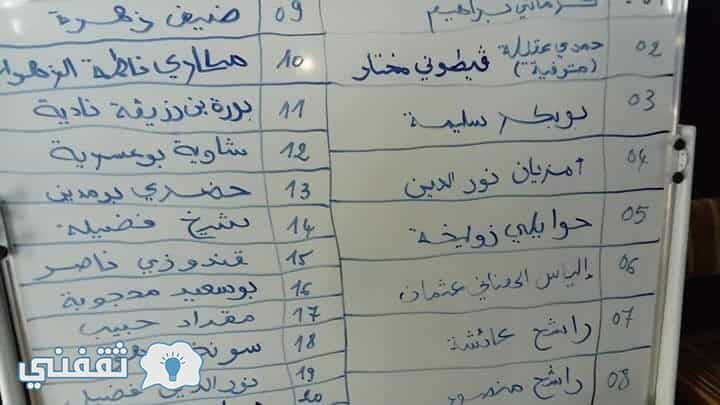 01 براهيم
02 حمدي قيطوني مختار
(متوفية)
03 بوبكر سليمة
04 أمزيان نور الدين
05 حوايلي زوليخة
06 إلياس الحسناني عثمان
07 راشح عائشة
08 راشح منصور
09 ضيف زهرة
10 مطاري فاطة الزهراء
11 بورة بن رزيقة نادية
12 شاوية بوعسرية
13 حضري بومدين
14 شيخ فضيلة
15 قندوزي ناصر
16 بوسعيد محجوبة
17 مقداد حبيب
18
19 نور الدين فضيل
20
ثقفني